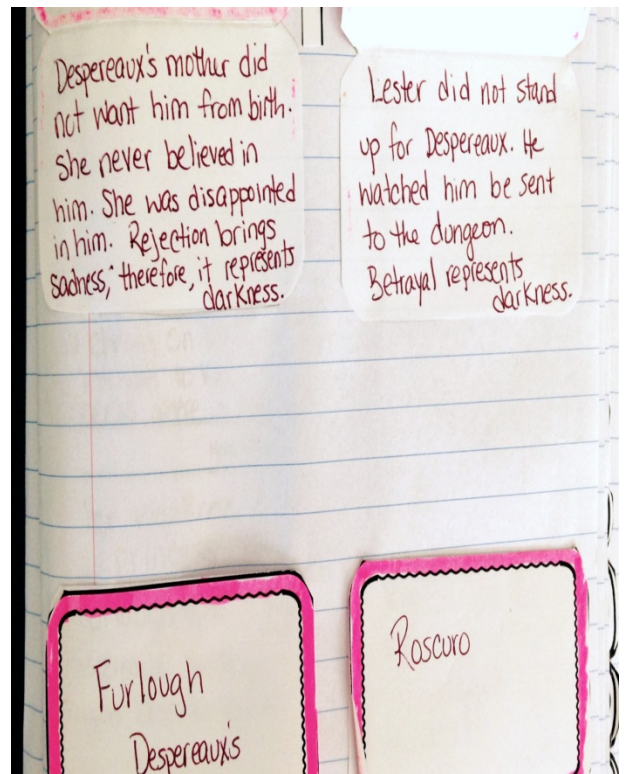 Despereaux's mother did
not want him from birth.
She never believed in
him. She was disappointed
in him. Rejection brings
sadness; therefore, it represents
darkness.
Lester did not stand
up for Despereaux. He
watched him be sent
to the dungeon.
Betrayal represents
darkness.
Furlough
Despereaux's
Roscuro